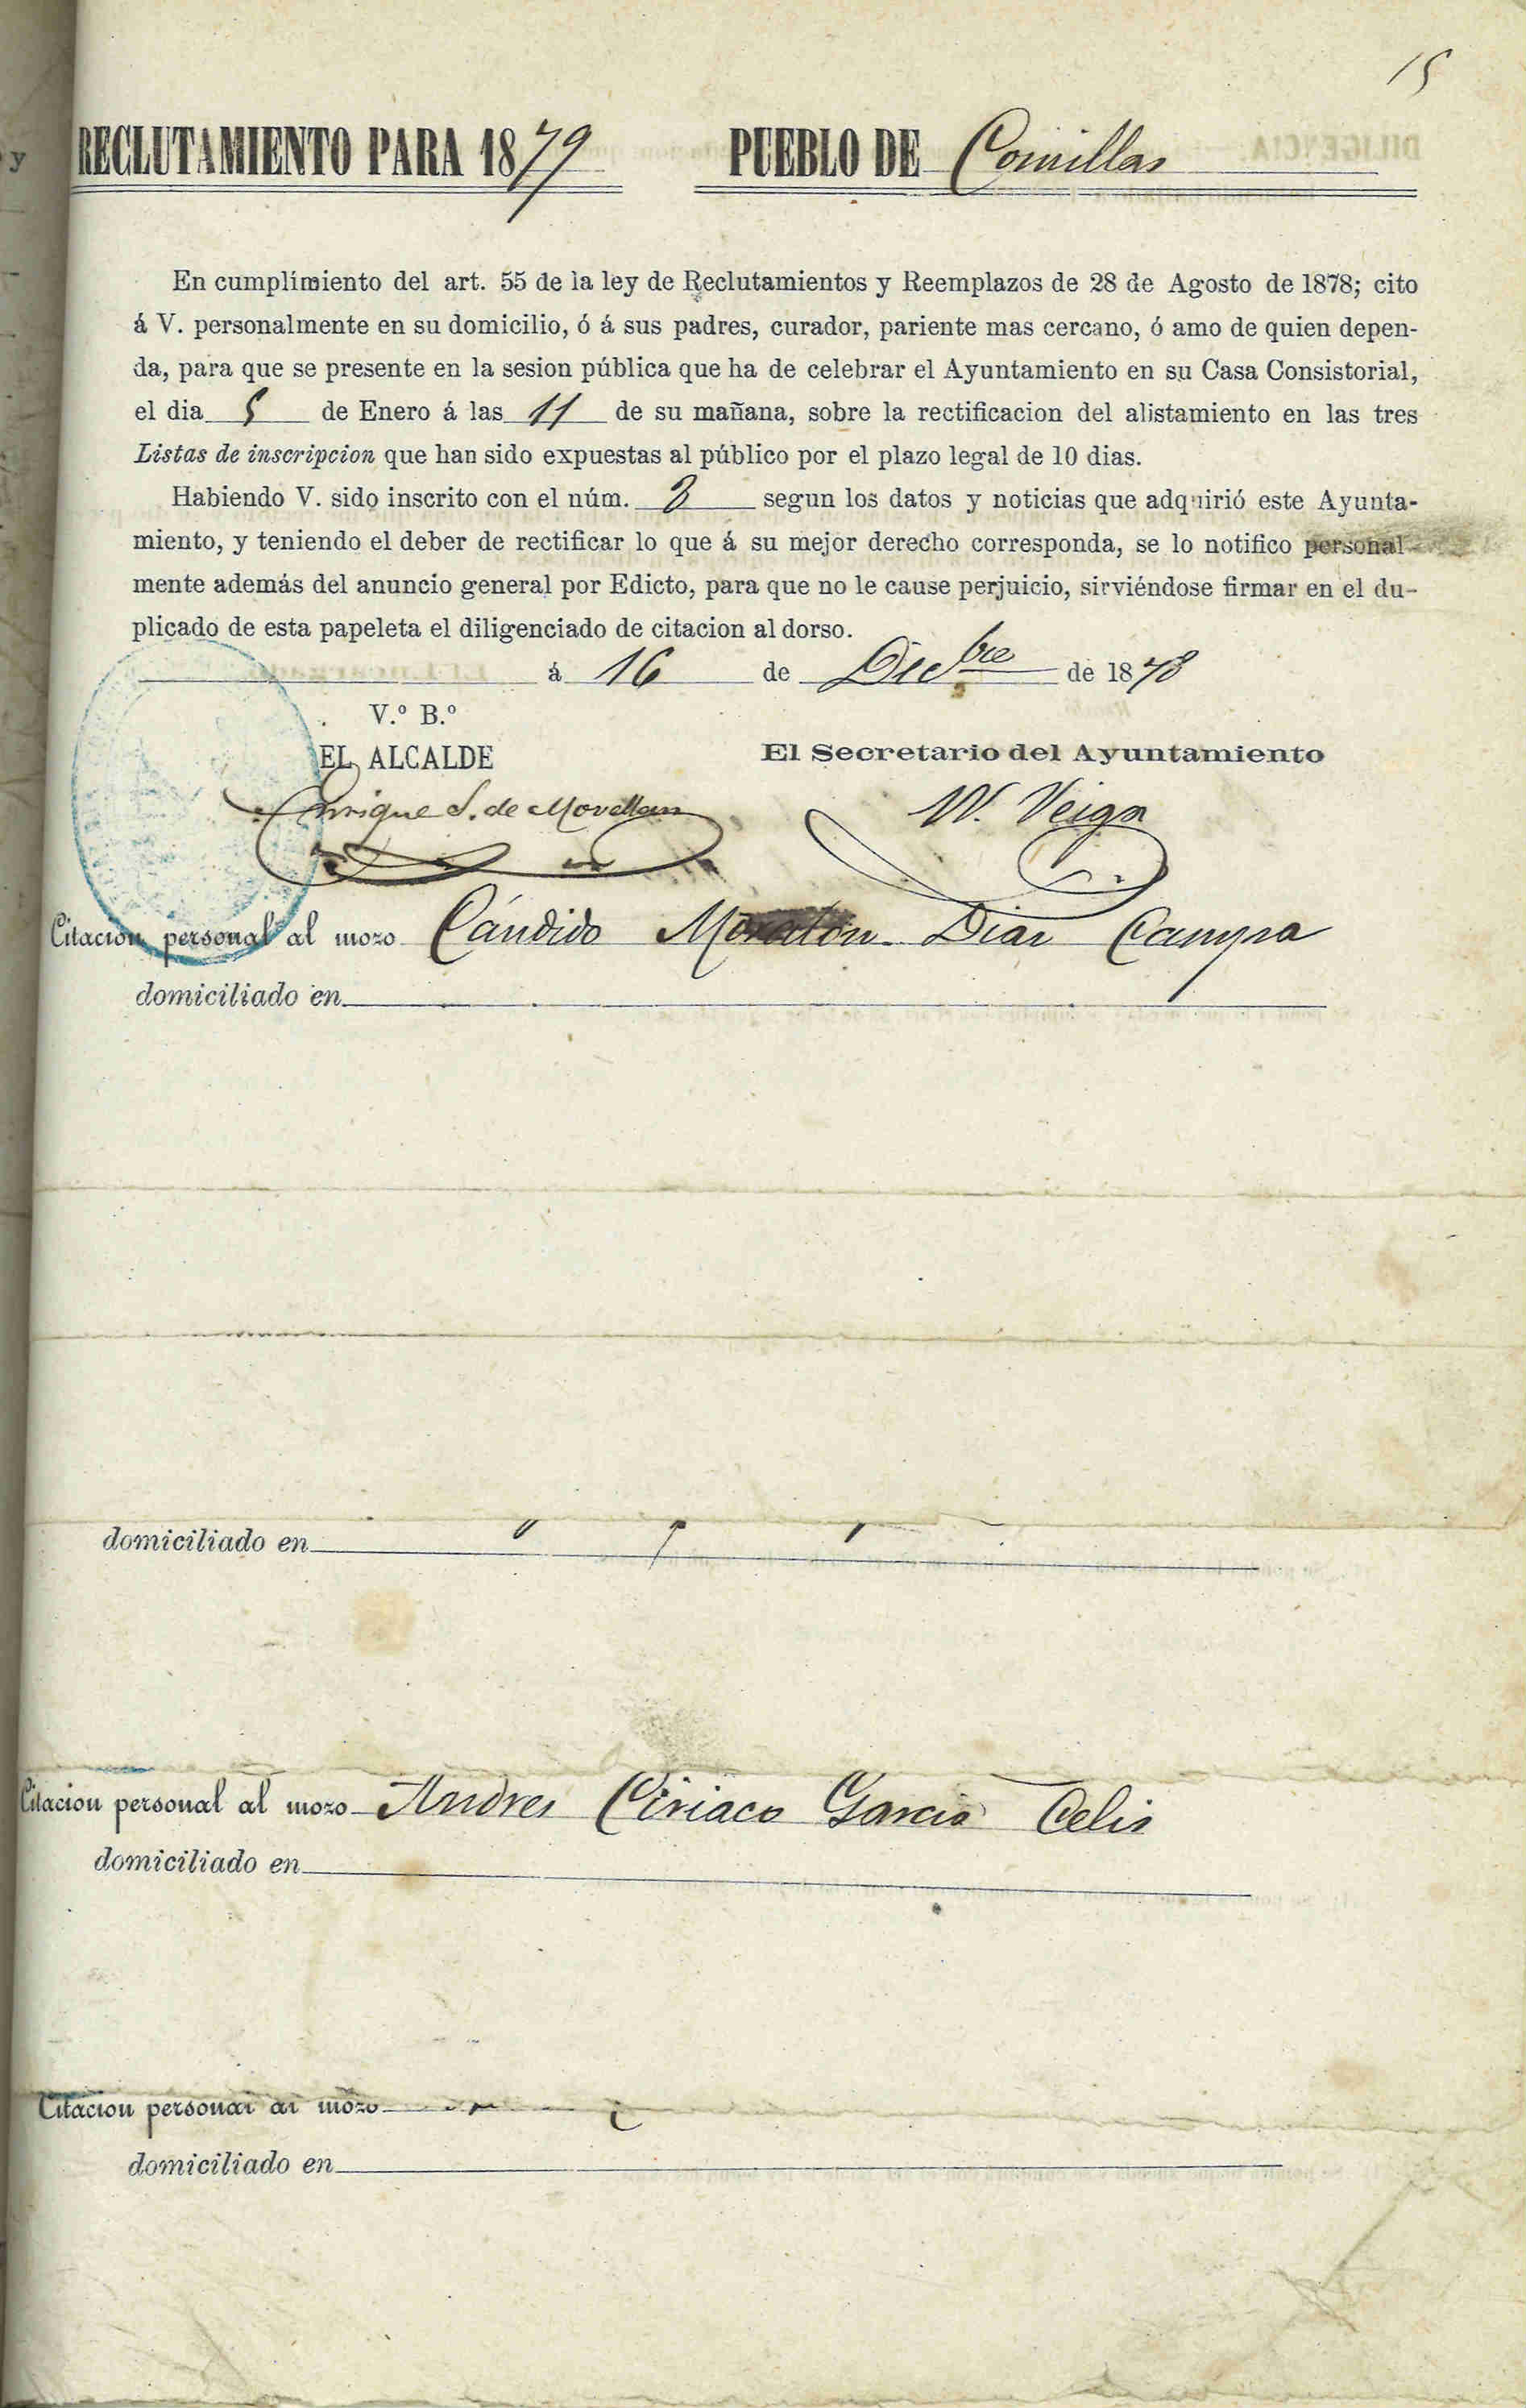 15
y
RECLUTAMIENTO PARA 1879 PUEBLO DE Comillas
En cumplimiento del art. 55 de la ley de Reclutamientos y Reemplazos de 28 de Agosto de 1878; cito
á V. personalmente en su domicilio, ó á sus padres, curador, pariente mas cercano, ó amo de quien depen-
da, para que se presente en la sesion pública que ha de celebrar el Ayuntamiento en su Casa Consistorial,
el dia 5 de Enero á las 11 de su mañana, sobre la rectificacion del alistamiento en las tres
Listas de inscripcion que han sido expuestas al público por el plazo legal de 10 dias.
Habiendo V. sido inscrito con el núm. 2 segun los datos y noticias que adquirió este Ayunta-
miento, y teniendo el deber de rectificar lo que á su mejor derecho corresponda, se lo notifico personal-
mente además del anuncio general por Edicto, para que no le cause perjuicio, sirviéndose firmar en el du-
plicado de esta papeleta el diligenciado de citacion al dorso.
á 16 de Dicbre de 1878
V.º B.º
EL ALCALDE El Secretario del Ayuntamiento
Enrique S. de Movellan W. Veiga
Citacion personal al mozo Cándido Diaz Campa
domiciliado en
domiciliado en
Citacion personal al mozo Andres Ciriaco Garcia Celis
domiciliado en
Citacion personal al mozo
domiciliado en